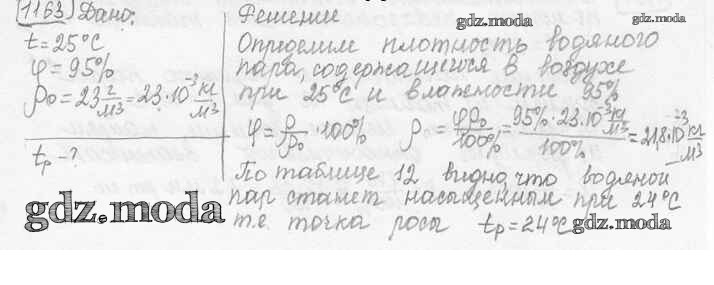 1163 Дано:
t=25°C
φ=95%
ρ₀=23 г/м³=23·10⁻³ кг/м³
tр-?
gdz.moda
Решение
gdz.moda
Определим плотность водяного
пара, содержащегося в воздухе
при 25°C и влажености 95%
φ=ρ/ρ₀·100% ρ=φρ₀/100%=95%·23·10⁻³ кг/м³/100%=21,8·10⁻³ кг/м³
По таблице 12 видно, что водяной
пар станет насыщенным при 24°C
т.е. точка росы tр=24°C gdz.moda